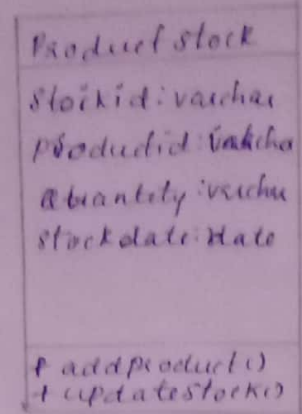 Product Stock
Stockid : varchar
productid : varcha
Quantity : varchar
stockdate : Date
+ addproduct()
+ updatestock()